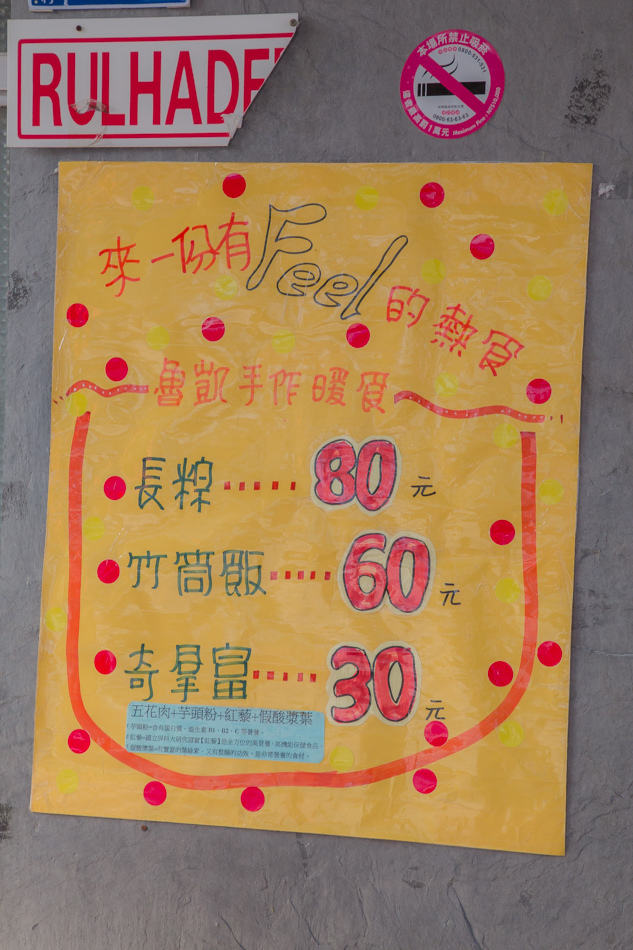 RULHADE
本場所禁止吸菸
0800-531-531
0800-63-63-63
Maximum Fine : NT$10,000
來一份有Feel的熱食
魯凱手作暖食
長粽 80元
竹筒飯 60元
奇拏富 30元
五花肉+芋頭粉+紅藜+假酸漿葉